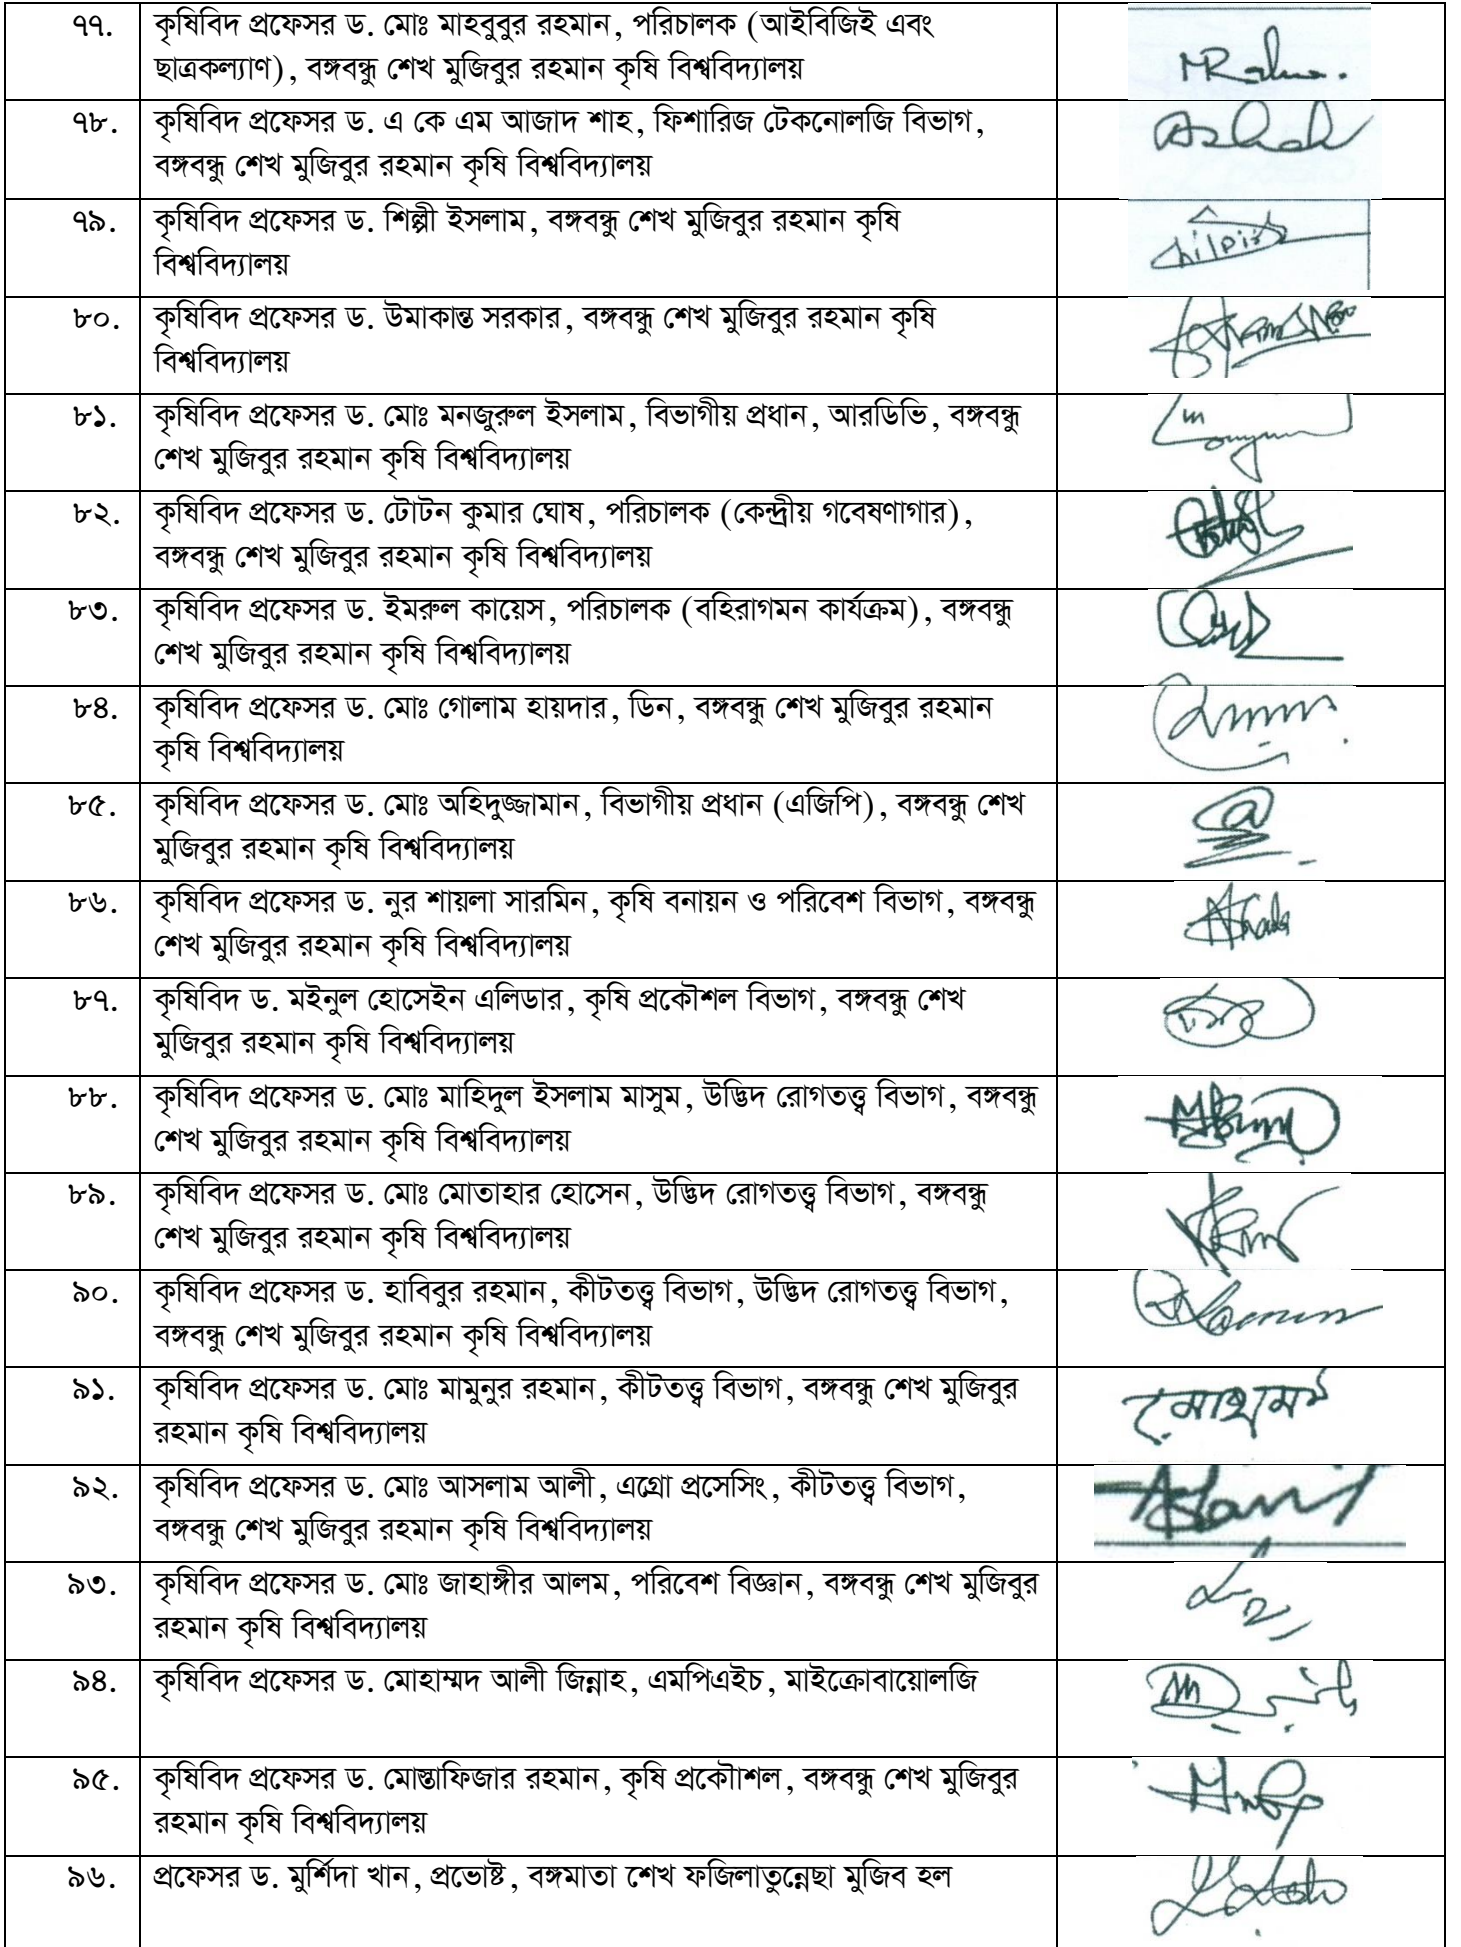 ৭৭. কৃষিবিদ প্রফেসর ড. মোঃ মাহবুবুর রহমান, পরিচালক (আইবিজিই এবং
ছাত্রকল্যাণ), বঙ্গবন্ধু শেখ মুজিবুর রহমান কৃষি বিশ্ববিদ্যালয়
৭৮. কৃষিবিদ প্রফেসর ড. এ কে এম আজাদ শাহ, ফিশারিজ টেকনোলজি বিভাগ,
বঙ্গবন্ধু শেখ মুজিবুর রহমান কৃষি বিশ্ববিদ্যালয়
৭৯. কৃষিবিদ প্রফেসর ড. শিল্পী ইসলাম, বঙ্গবন্ধু শেখ মুজিবুর রহমান কৃষি
বিশ্ববিদ্যালয়
৮০. কৃষিবিদ প্রফেসর ড. উমাকান্ত সরকার, বঙ্গবন্ধু শেখ মুজিবুর রহমান কৃষি
বিশ্ববিদ্যালয়
৮১. কৃষিবিদ প্রফেসর ড. মোঃ মনজুরুল ইসলাম, বিভাগীয় প্রধান, আরডিভি, বঙ্গবন্ধু
শেখ মুজিবুর রহমান কৃষি বিশ্ববিদ্যালয়
৮২. কৃষিবিদ প্রফেসর ড. টোটন কুমার ঘোষ, পরিচালক (কেন্দ্রীয় গবেষণাগার),
বঙ্গবন্ধু শেখ মুজিবুর রহমান কৃষি বিশ্ববিদ্যালয়
৮৩. কৃষিবিদ প্রফেসর ড. ইমরুল কায়েস, পরিচালক (বহিরাগমন কার্যক্রম), বঙ্গবন্ধু
শেখ মুজিবুর রহমান কৃষি বিশ্ববিদ্যালয়
৮৪. কৃষিবিদ প্রফেসর ড. মোঃ গোলাম হায়দার, ডিন, বঙ্গবন্ধু শেখ মুজিবুর রহমান
কৃষি বিশ্ববিদ্যালয়
৮৫. কৃষিবিদ প্রফেসর ড. মোঃ অহিদুজ্জামান, বিভাগীয় প্রধান (এজিপি), বঙ্গবন্ধু শেখ
মুজিবুর রহমান কৃষি বিশ্ববিদ্যালয়
৮৬. কৃষিবিদ প্রফেসর ড. নুর শায়লা সারমিন, কৃষি বনায়ন ও পরিবেশ বিভাগ, বঙ্গবন্ধু
শেখ মুজিবুর রহমান কৃষি বিশ্ববিদ্যালয়
৮৭. কৃষিবিদ ড. মইনুল হোসেইন এলিডার, কৃষি প্রকৌশল বিভাগ, বঙ্গবন্ধু শেখ
মুজিবুর রহমান কৃষি বিশ্ববিদ্যালয়
৮৮. কৃষিবিদ প্রফেসর ড. মোঃ মাহিদুল ইসলাম মাসুম, উদ্ভিদ রোগতত্ত্ব বিভাগ, বঙ্গবন্ধু
শেখ মুজিবুর রহমান কৃষি বিশ্ববিদ্যালয়
৮৯. কৃষিবিদ প্রফেসর ড. মোঃ মোতাহার হোসেন, উদ্ভিদ রোগতত্ত্ব বিভাগ, বঙ্গবন্ধু
শেখ মুজিবুর রহমান কৃষি বিশ্ববিদ্যালয়
৯০. কৃষিবিদ প্রফেসর ড. হাবিবুর রহমান, কীটতত্ত্ব বিভাগ, উদ্ভিদ রোগতত্ত্ব বিভাগ,
বঙ্গবন্ধু শেখ মুজিবুর রহমান কৃষি বিশ্ববিদ্যালয়
৯১. কৃষিবিদ প্রফেসর ড. মোঃ মামুনুর রহমান, কীটতত্ত্ব বিভাগ, বঙ্গবন্ধু শেখ মুজিবুর
রহমান কৃষি বিশ্ববিদ্যালয়
৯২. কৃষিবিদ প্রফেসর ড. মোঃ আসলাম আলী, এগ্রো প্রসেসিং, কীটতত্ত্ব বিভাগ,
বঙ্গবন্ধু শেখ মুজিবুর রহমান কৃষি বিশ্ববিদ্যালয়
৯৩. কৃষিবিদ প্রফেসর ড. মোঃ জাহাঙ্গীর আলম, পরিবেশ বিজ্ঞান, বঙ্গবন্ধু শেখ মুজিবুর
রহমান কৃষি বিশ্ববিদ্যালয়
৯৪. কৃষিবিদ প্রফেসর ড. মোহাম্মদ আলী জিন্নাহ, এমপিএইচ, মাইক্রোবায়োলজি
৯৫. কৃষিবিদ প্রফেসর ড. মোস্তাফিজার রহমান, কৃষি প্রকৌাশল, বঙ্গবন্ধু শেখ মুজিবুর
রহমান কৃষি বিশ্ববিদ্যালয়
৯৬. প্রফেসর ড. মুর্শিদা খান, প্রভোষ্ট, বঙ্গমাতা শেখ ফজিলাতুন্নেছা মুজিব হল